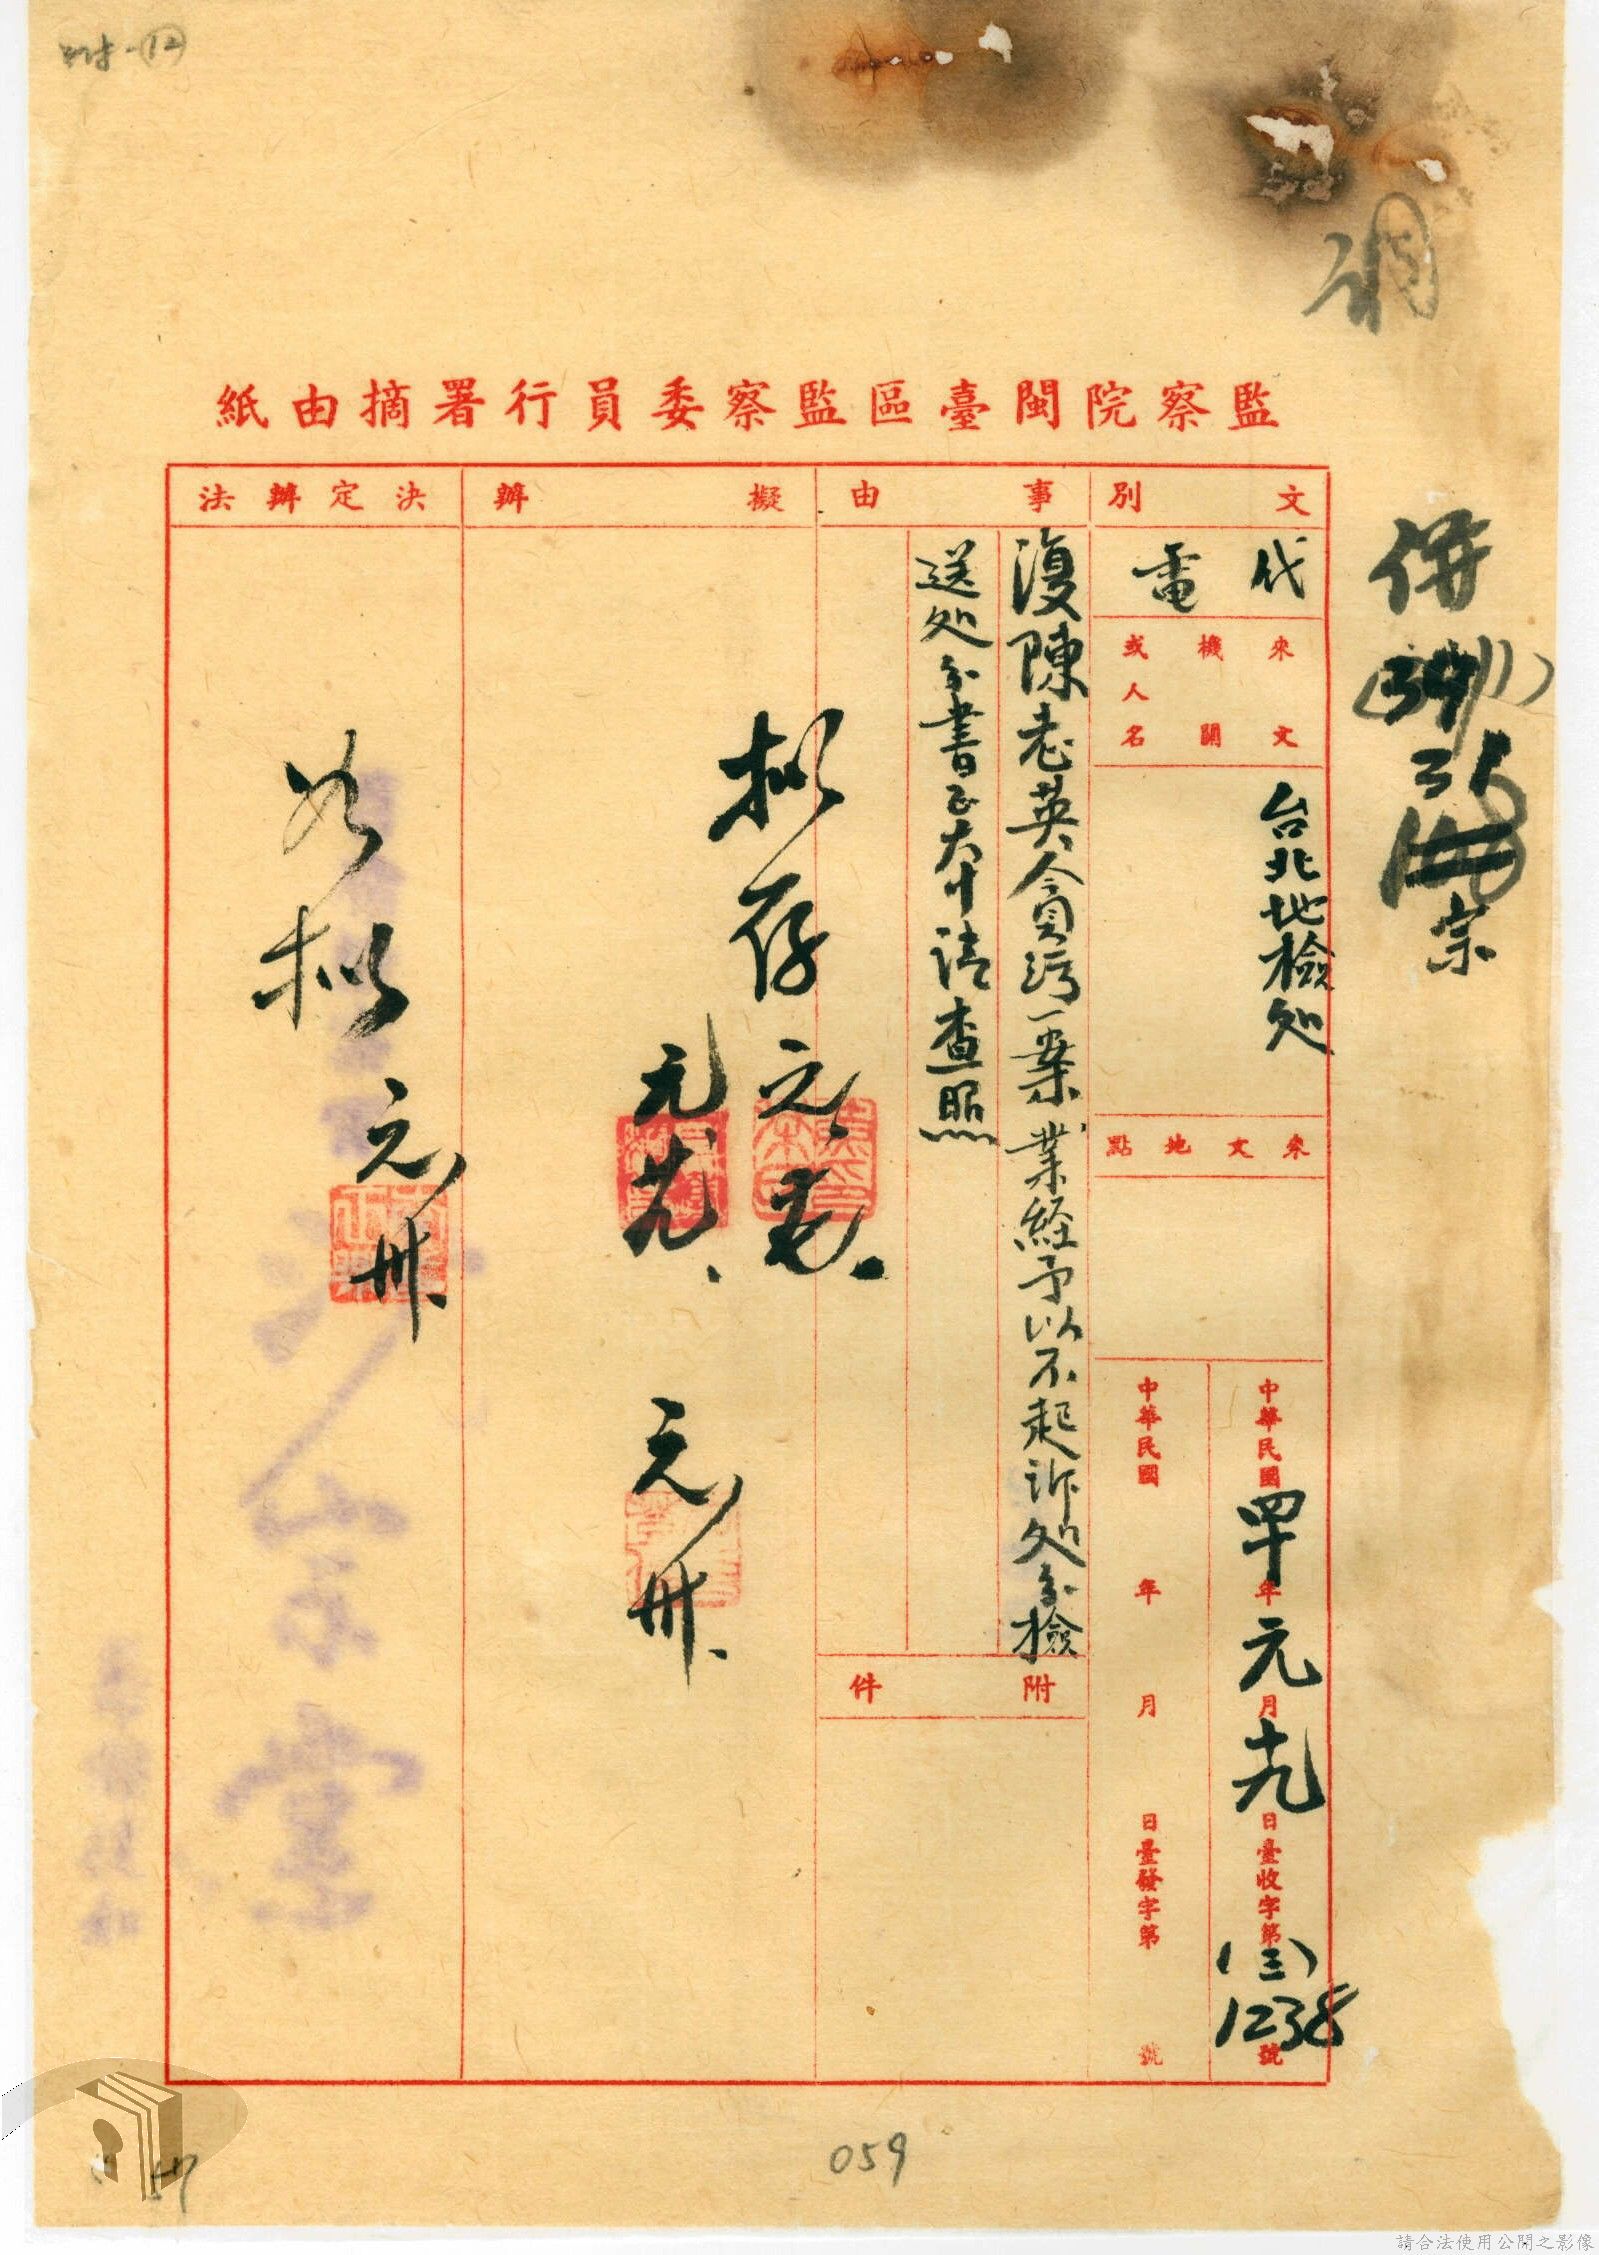 附-(12)
調
監察院閩臺區監察委員行署摘由紙
併
宗
文別
代電
來文機關或人名
台北地檢処
來文地點
中華民國四十年元月十九日臺收字第(三)1238號
中華民國 年 月 日臺發字第 號
事由
復陳老英貪污一案業経予以不起訴処分檢
送処分書正本十請查照
附件
擬辦
拟存
元、
元
元、卅、
決定辦法
如拟
元、卅、
059
請合法使用公開之影像